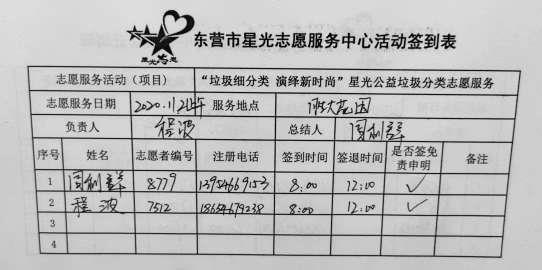 星光志愿
东营市星光志愿服务中心活动签到表
志愿服务活动（项目） “垃圾细分类 演绎新时尚”星光公益垃圾分类志愿服务
志愿服务日期 2020.11 服务地点 花园
负责人 程波 总结人 周利
序号 姓名 志愿者编号 注册电话 签到时间 签退时间 是否签免责申明 备注
1 周利 8779 13954669153 8:00 12:00 ✓
2 程波 7512 18654679238 8:00 12:00 ✓
3
4